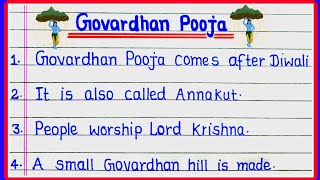 Govardhan Pooja
1. Govardhan Pooja comes after Diwali
2. It is also called Annakut.
3. People worship Lord Krishna.
4. A small Govardhan hill is made.